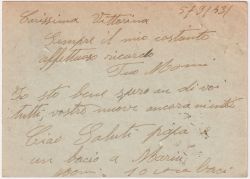 5/9/43
Carissima Vittorina
Sempre il mio costante
affettuoso ricordo
Tuo Momi
Io sto bene spero in di voi
tutti, vostre nuove ancora niente
Ciao Saluti papà
un bacio a Maria